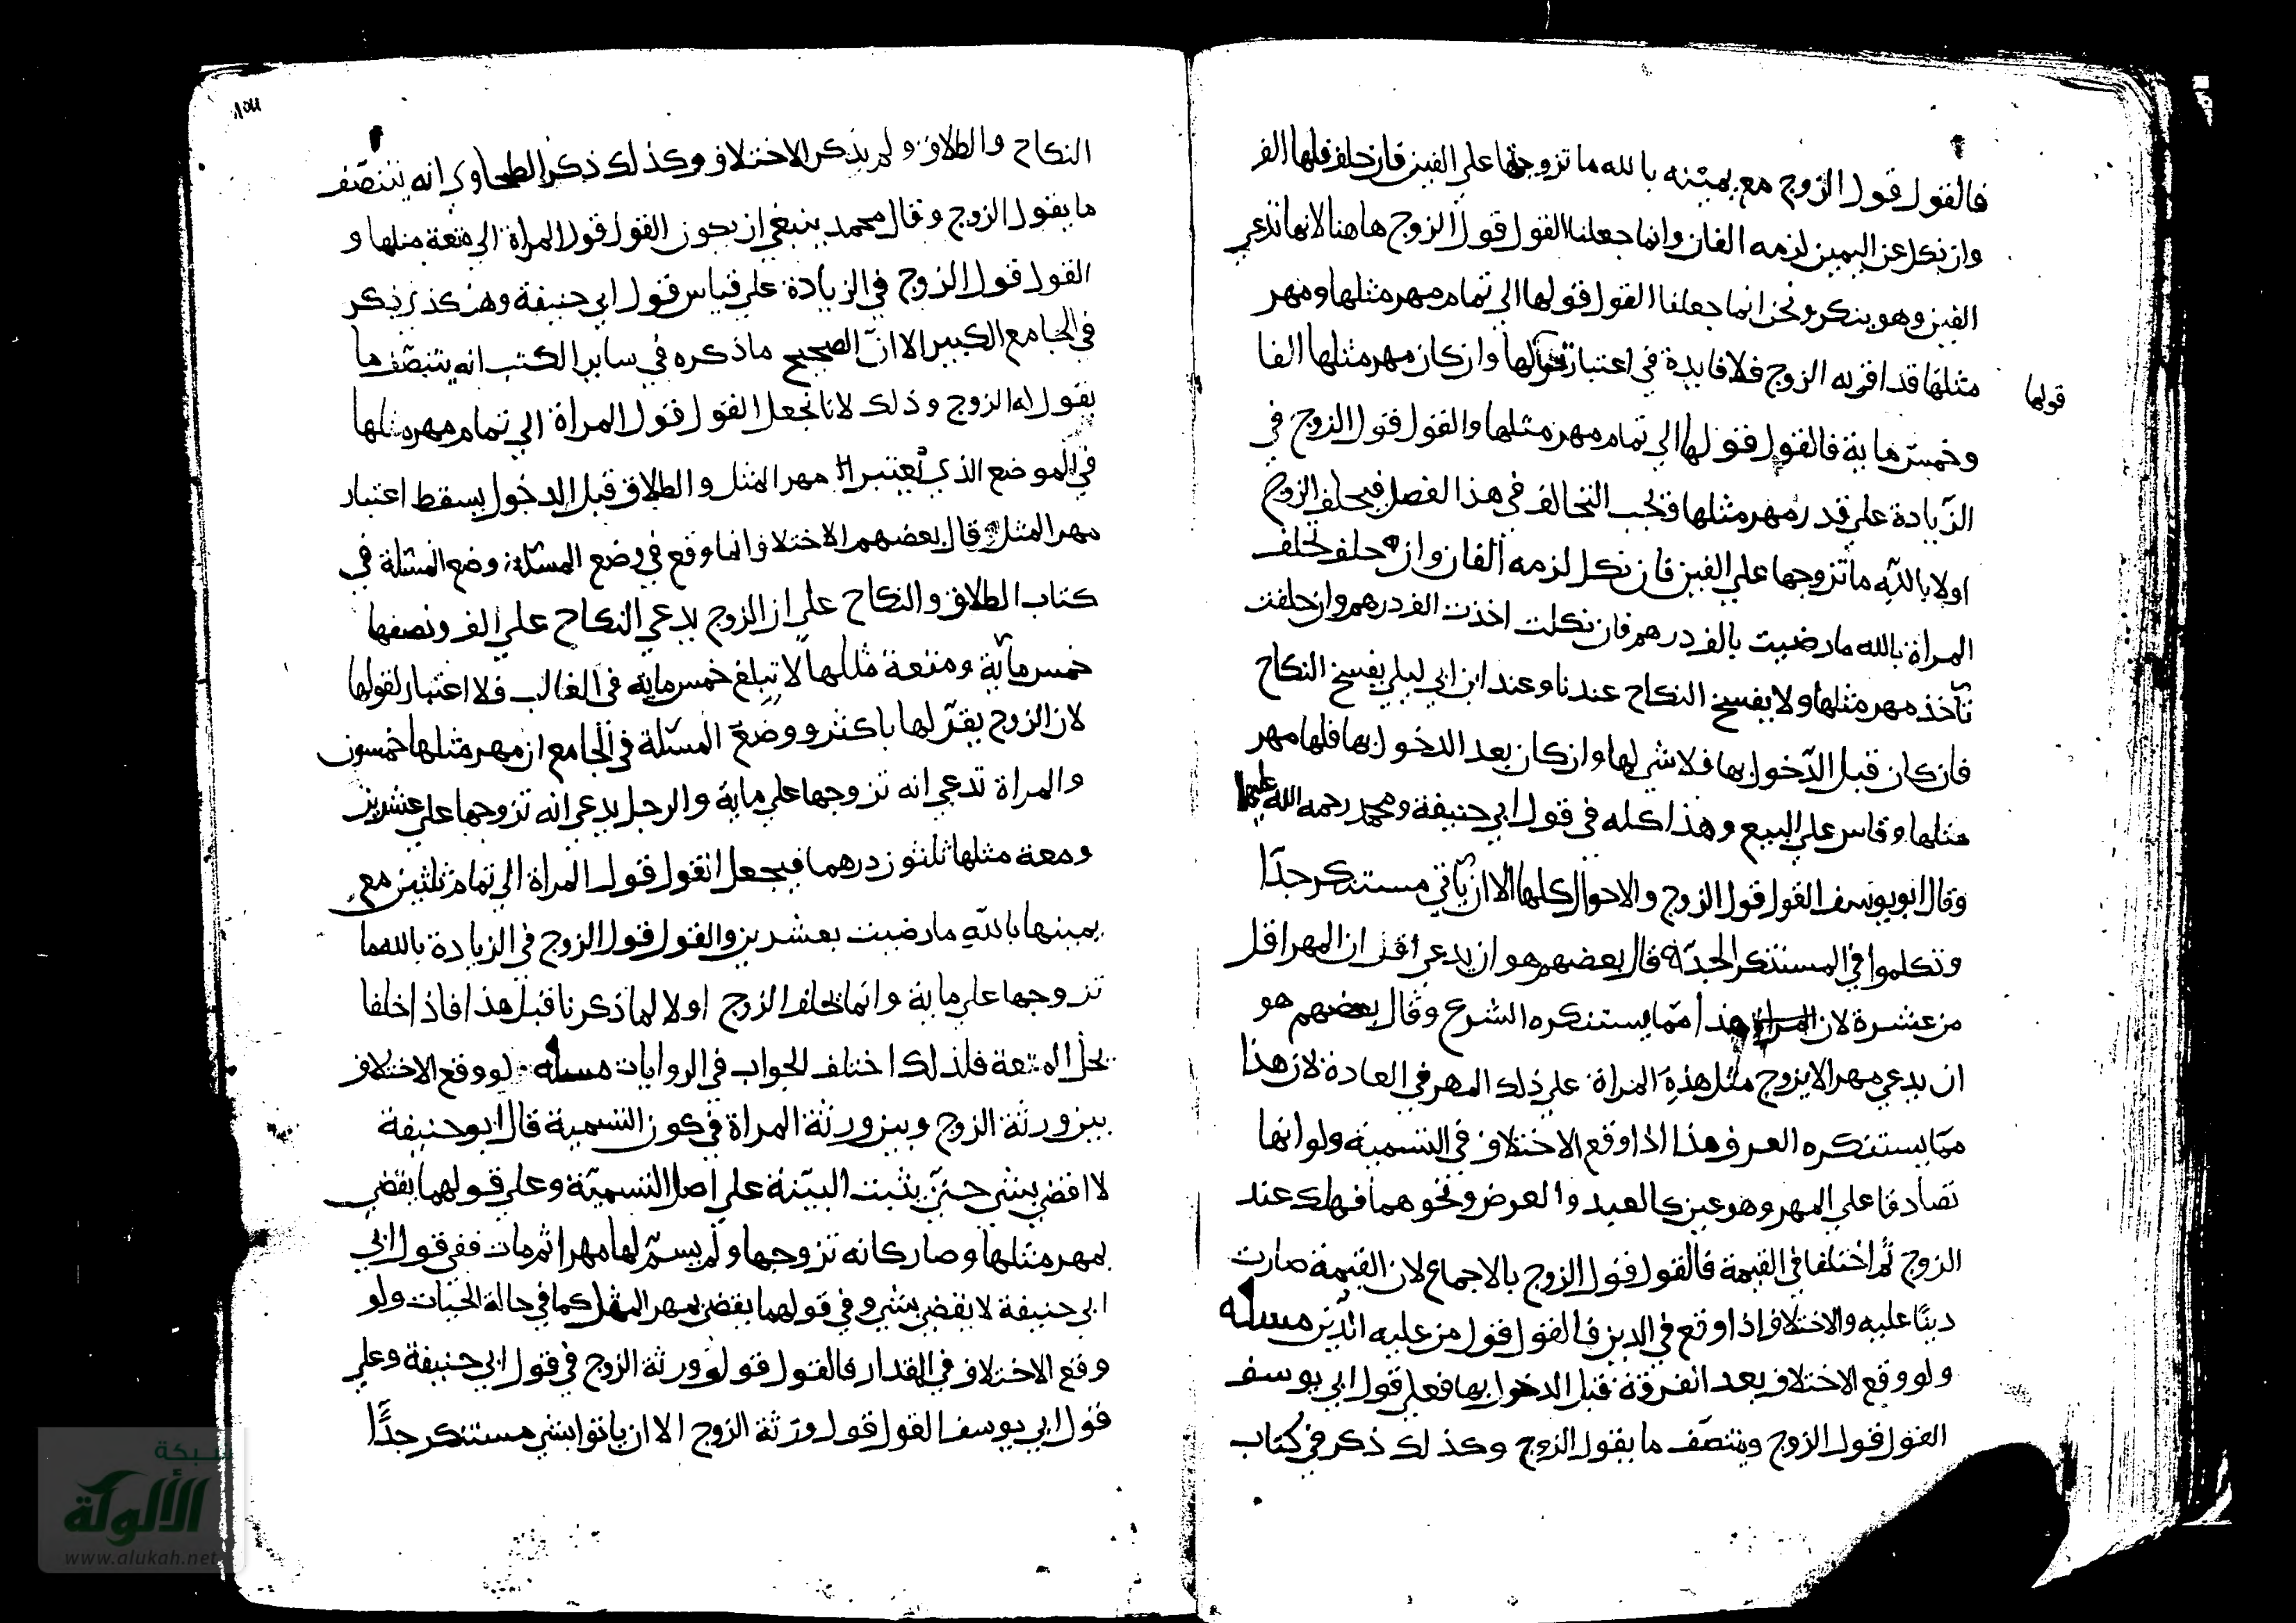 فالقول قول الزوج مع يمينه بالله ما تزوجها على الفين فان حلف فلها الف
وان نكل عن اليمين لزمه الفان وانما جعلنا القول قول الزوج هاهنا لانها تدعي
الفين وهو ينكر ونحن انما جعلنا القول قولها الى تمام مهر مثلها ومهر
مثلها قد اقر به الزوج فلا فايدة في اعتبار قولها وان كان مهر مثلها الفا
قولها
وخمس ماية فالقول قولها الى تمام مهر مثلها والقول قول الزوج في
الزيادة على قدر مهر مثلها فيجب التحالف في هذا الفصل فيحلف الزوج
اولا بالله ما تزوجها على الفين فان نكل لزمه الفان وان حلف تحلف
المراة بالله ما رضيت بالف درهم فان نكلت اخذت الف درهم وان حلفت
تاخذ مهر مثلها ولا يفسخ النكاح عندنا وعند ابن ابي ليلى يفسخ النكاح
فان كان قبل الدخول بها فلا شي لها وان كان بعد الدخول بها فلها مهر
مثلها وقاس على البيع وهذا كله في قول ابي حنيفة ومحمد رحمه الله عليهما
وقال ابو يوسف القول قول الزوج والاحوال كلها الا ان ياتي مستنكر جدا
وتكلموا في المستنكر الجد قال بعضهم هو ان يدعي اقل ان المهر اقل
من عشرة لان هذا مما يستنكره الشرع وقال بعضهم هو
ان يدعي مهر الا يزوج مثل هذه المراة على ذلك المهر في العادة لان هذا
مما يستنكره العرف هذا اذا وقع الاختلاف في التسمية ولو انها
تصادقا على المهر وهو عين كالعبد والعرض ونحوهما فهلك عند
الزوج ثم اختلفا في القيمة فالقول قول الزوج بالاجماع لان القيمة صارت
دينا عليه والاختلاف اذا وقع في الدين فالقول قول من عليه الدين مسلة
ولو وقع الاختلاف بعد الفرقة قبل الدخول بها فعلى قول ابي يوسف
القول قول الزوج ويتنصف ما يقول الزوج وكذلك ذكر في كتاب
النكاح والطلاق ولم يذكر الاختلاف وكذلك ذكر الطحاوي انه يتنصف
ما يقول الزوج وقال محمد ينبغي ان يكون القول قول المراة الى متعة مثلها و
القول قول الزوج في الزيادة على قياس قول ابي حنيفة وهكذى ذكر
في الجامع الكبير الا ان الصحيح ما ذكره في ساير الكتب انه يتنصف ما
يقول له الزوج وذلك لانا نجعل القول قول المراة الى تمام مهر مثلها
في الموضع الذي يعتبر مهر المثل والطلاق قبل الدخول يسقط اعتبار
مهر المثل وقال بعضهم الاختلاف انما وقع في وضع المسئلة وضع المسئلة في
كتاب الطلاق والنكاح على ان الزوج يدعي النكاح على الف ونصفها
خمس ماية ومتعة مثلها لا تبلغ خمس ماية في الغالب فلا اعتبار لقولها
لان الزوج يقر لها باكثر ووضع المسئلة في الجامع ان مهر مثلها خمسون
والمراة تدعي انه تزوجها على ماية والرجل يدعي انه تزوجها على عشرين
ومعة مثلها ثلثون درهما فيجعل القول قول المراة الى تمام ثلثين مع
يمينها بالله ما رضيت بعشرين والقول قول الزوج في الزيادة بالله ما
تزوجها على ماية وانما تحلف الزوج اولا لما ذكرنا قبل هذا فاذا حلفا
يحل المتعة فلذلك اختلف الجواب في الروايات مسله لو وقع الاختلاف
بين ورثة الزوج وبين ورثة المراة في كون التسمية قال ابو حنيفة
لا اقضي بشي حتى يثبت البينة على اصل التسمية وعلى قولهما يقضي
بمهر مثلها وصار كانه تزوجها ولم يسم لها مهرا ثم مات ففي قول ابي
ابي حنيفة لا يقضى بشي وفي قولهما يقضى بمهر المثل كما في حالة الحيات ولو
وقع الاختلاف في القدار فالقول قول ورثة الزوج في قول ابي حنيفة وعلى
قول ابي يوسف القول قول ورثة الزوج الا ان ياتوا بشي مستنكر جدا
شبكة
الألوكة
www.alukah.net